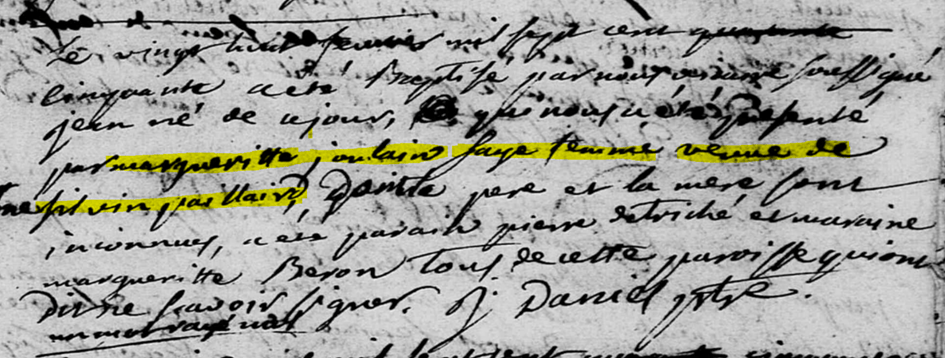 Le vingt huit fevrier mil sept cent quarante
cinquante a eté Baptisé par nous vicaire soussigné
jean né de ce jour, qui nous a été presenté
par margueritte joulain sage femme veuve de
silvin paillaird dont le pere et la mere sont
inconnues, a eté parain pierre detriché et maraine
margueritte Beron tous de cette paroisse qui ont
dit ne savoir signer. J Daniel ptre.
un mot rayé nul